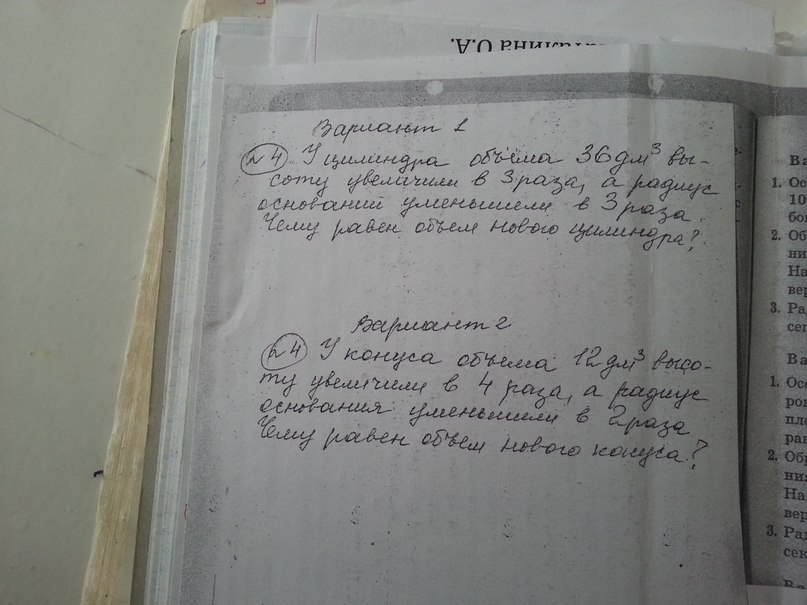 Вариант 1
№4 У цилиндра объёма 36 дм³ вы-
соту увеличили в 3 раза, а радиус
оснований уменьшили в 3 раза.
Чему равен объем нового цилиндра?
Вариант 2
№4 У конуса объема 12 дм³ высо-
ту увеличили в 4 раза, а радиус
основания уменьшили в 2 раза
Чему равен объем нового конуса?
О.А.
Ва
1. Ос
10
бо
2. Об
ни
На
вер
3. Ра
сег
Ва
1. Осе
рог
пло
ран
2. Обр
ния
На
вер
3. Рад
сек